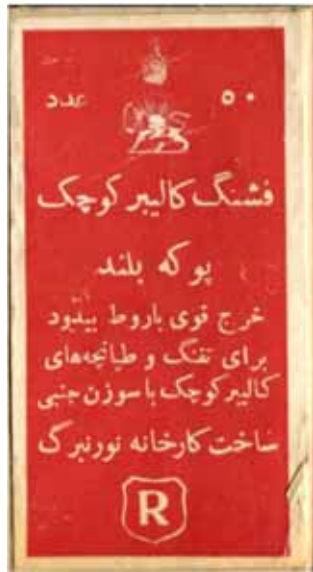 ۵۰ عدد
فشنگ کالیبر کوچک
پوکه بلند
خرج قوی باروط بیدود
برای تفنگ و طپانچه‌های
کالیبر کوچک با سوزن جنبی
ساخت کارخانه نورنبرگ
R